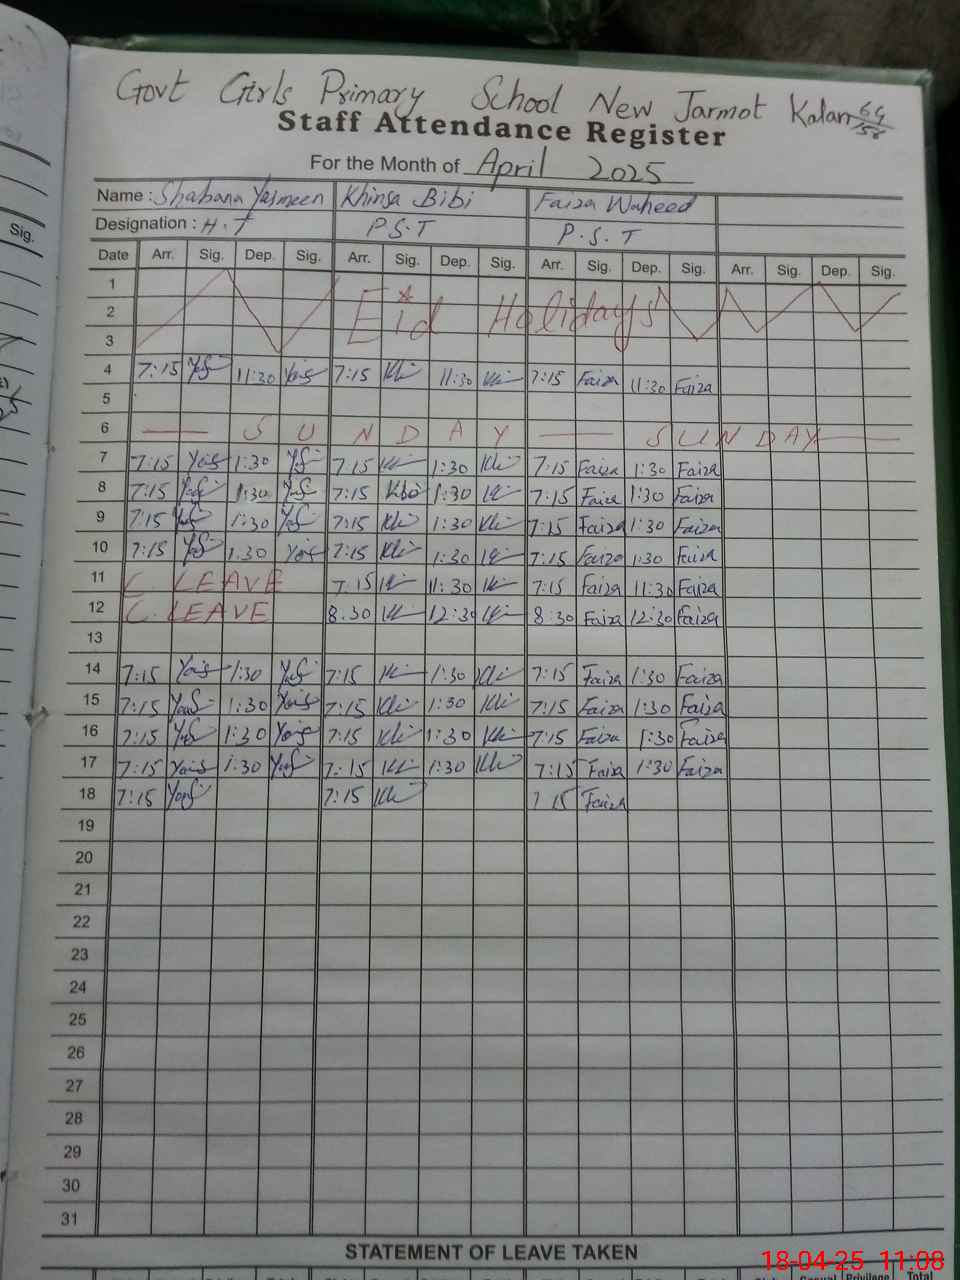 Govt Girls Primary School New Jarmot Kalan 64/156
Staff Attendance Register
For the Month of April 2025
Name : Shabana Yasmeen Khinsa Bibi Faiza Waheed
Designation : H.T P.S.T P.S.T
Sig.
Date Arr. Sig. Dep. Sig. Arr. Sig. Dep. Sig. Arr. Sig. Dep. Sig. Arr. Sig. Dep. Sig.
1
2 Eid Holidays
3
4 7:15 Yas 11:30 Yas 7:15 Kh 11:30 Kh 7:15 Faiza 11:30 Faiza
5
6 SUNDAY SUNDAY
7 7:15 Yas 1:30 Yas 7:15 Kh 1:30 Kh 7:15 Faiza 1:30 Faiza
8 7:15 Yas 1:30 Yas 7:15 Kh 1:30 Kh 7:15 Faiza 1:30 Faiza
9 7:15 Yas 1:30 Yas 7:15 Kh 1:30 Kh 7:15 Faiza 1:30 Faiza
10 7:15 Yas 1:30 Yas 7:15 Kh 1:30 Kh 7:15 Faiza 1:30 Faiza
11 C LEAVE 7.15 Kh 11:30 Kh 7:15 Faiza 11:30 Faiza
12 C.LEAVE 8.30 Kh 12:30 Kh 8:30 Faiza 12:30 Faiza
13
14 7:15 Yas 1:30 Yas 7:15 Kh 1:30 Kh 7:15 Faiza 1:30 Faiza
15 7:15 Yas 1:30 Yas 7:15 Kh 1:30 Kh 7:15 Faiza 1:30 Faiza
16 7:15 Yas 1:30 Yas 7:15 Kh 1:30 Kh 7:15 Faiza 1:30 Faiza
17 7:15 Yas 1:30 Yas 7:15 Kh 1:30 Kh 7:15 Faiza 1:30 Faiza
18 7:15 Yas 7:15 Kh 7 15 Faiza
19
20
21
22
23
24
25
26
27
28
29
30
31
STATEMENT OF LEAVE TAKEN
18-04-25 11:08
Casual Privilege Total